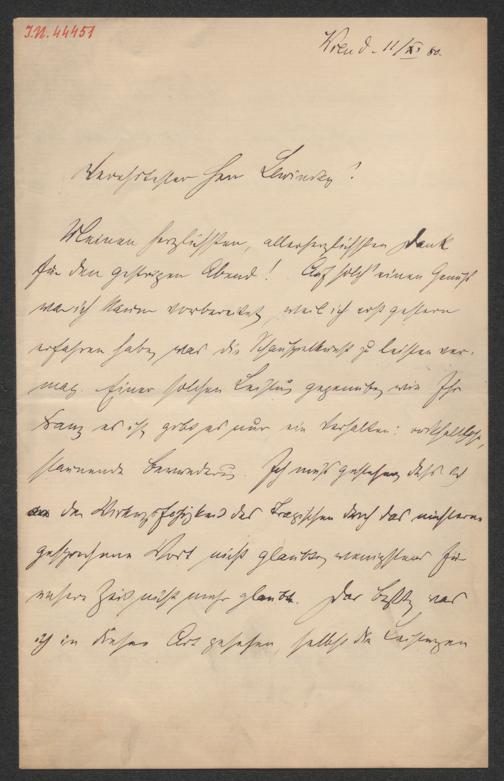 I.N. 44451
Wien d. 11/XI 80.
Verehrtester Herr Lewinsky!
Meinen herzlichsten, allerherzlichsten Dank
für den gestrigen Abend! Auf solch' einen Genuß
war ich kaum vorbereitet, weil ich erst gestern
erfahren habe, was die Schauspielkunst zu leisten ver-
mag. Einer solchen Leistung gegenüber, wie Ihr
Franz es ist, gebe es nur ein Verhalten: rückhaltlose,
staunende Bewunderung. Ich muß gestehen, daß ich
an die Wirkungsfähigkeit des Tragischen durch das
gesprochene Wort nicht glaubte, wenigstens für
unsere Zeit nicht mehr glaubte. Das Beste, was
ich in dieser Art gesehen, selbst die Leistungen